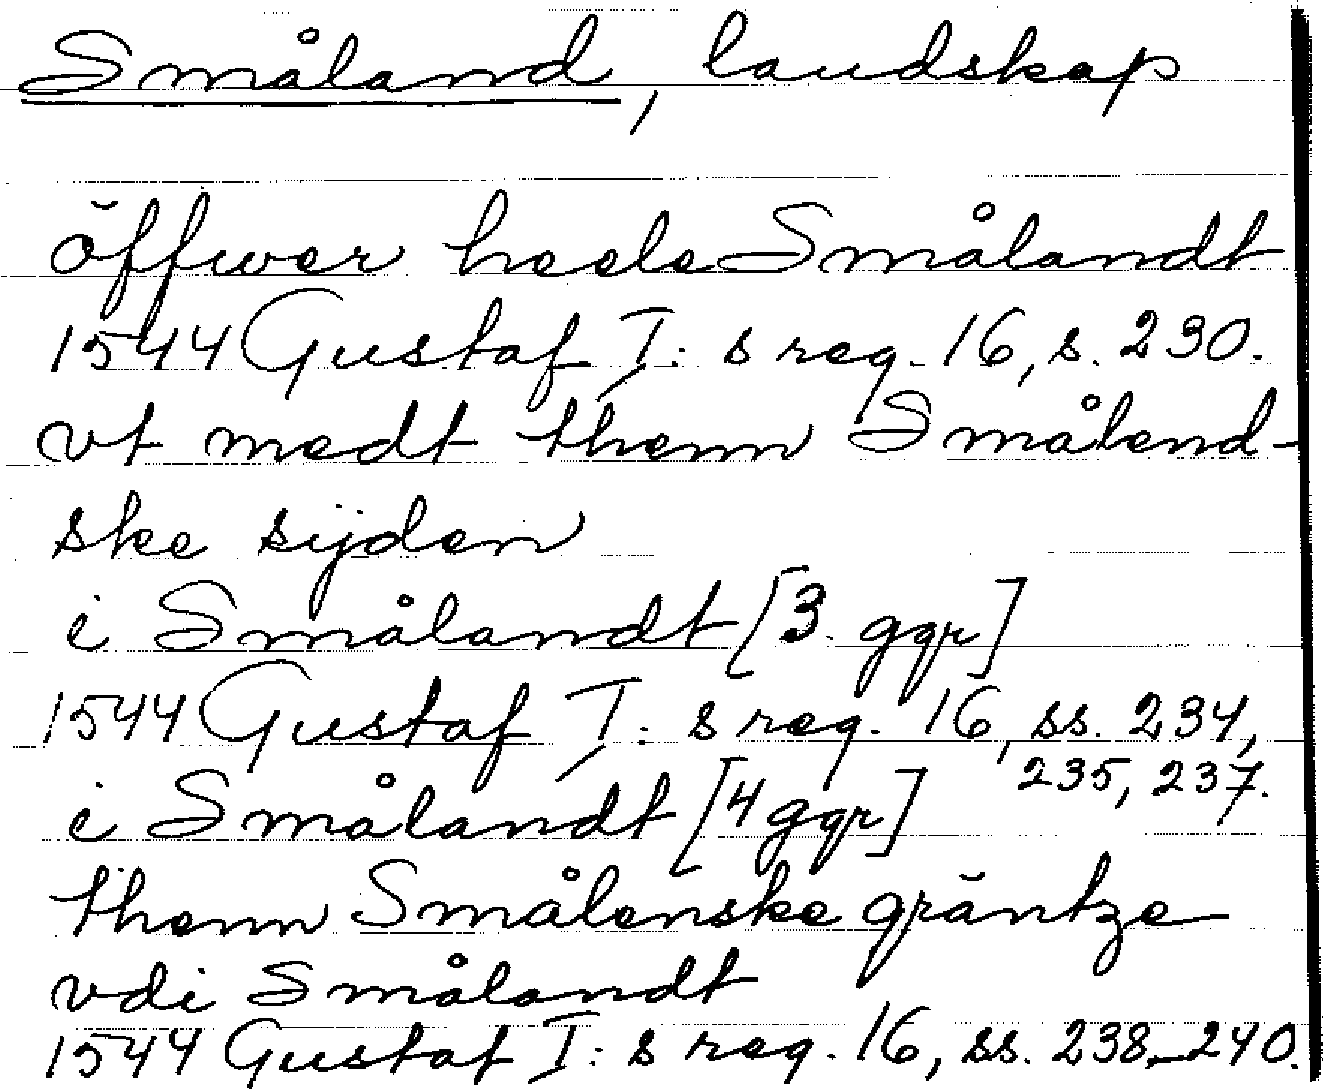 Småland, landskap
öffwer heele Smålandt
1544 Gustaf I:s reg. 16, s. 230.
vt medt thenn Småland-
ske sijden
i Smålandt [3 ggr]
1544 Gustaf I:s reg. 16, ss. 234,
235, 237.
i Smålandt [4 ggr]
thenn Smålenske gräntze
vdi Smålandt
1544 Gustaf I:s reg. 16, ss. 238-240.